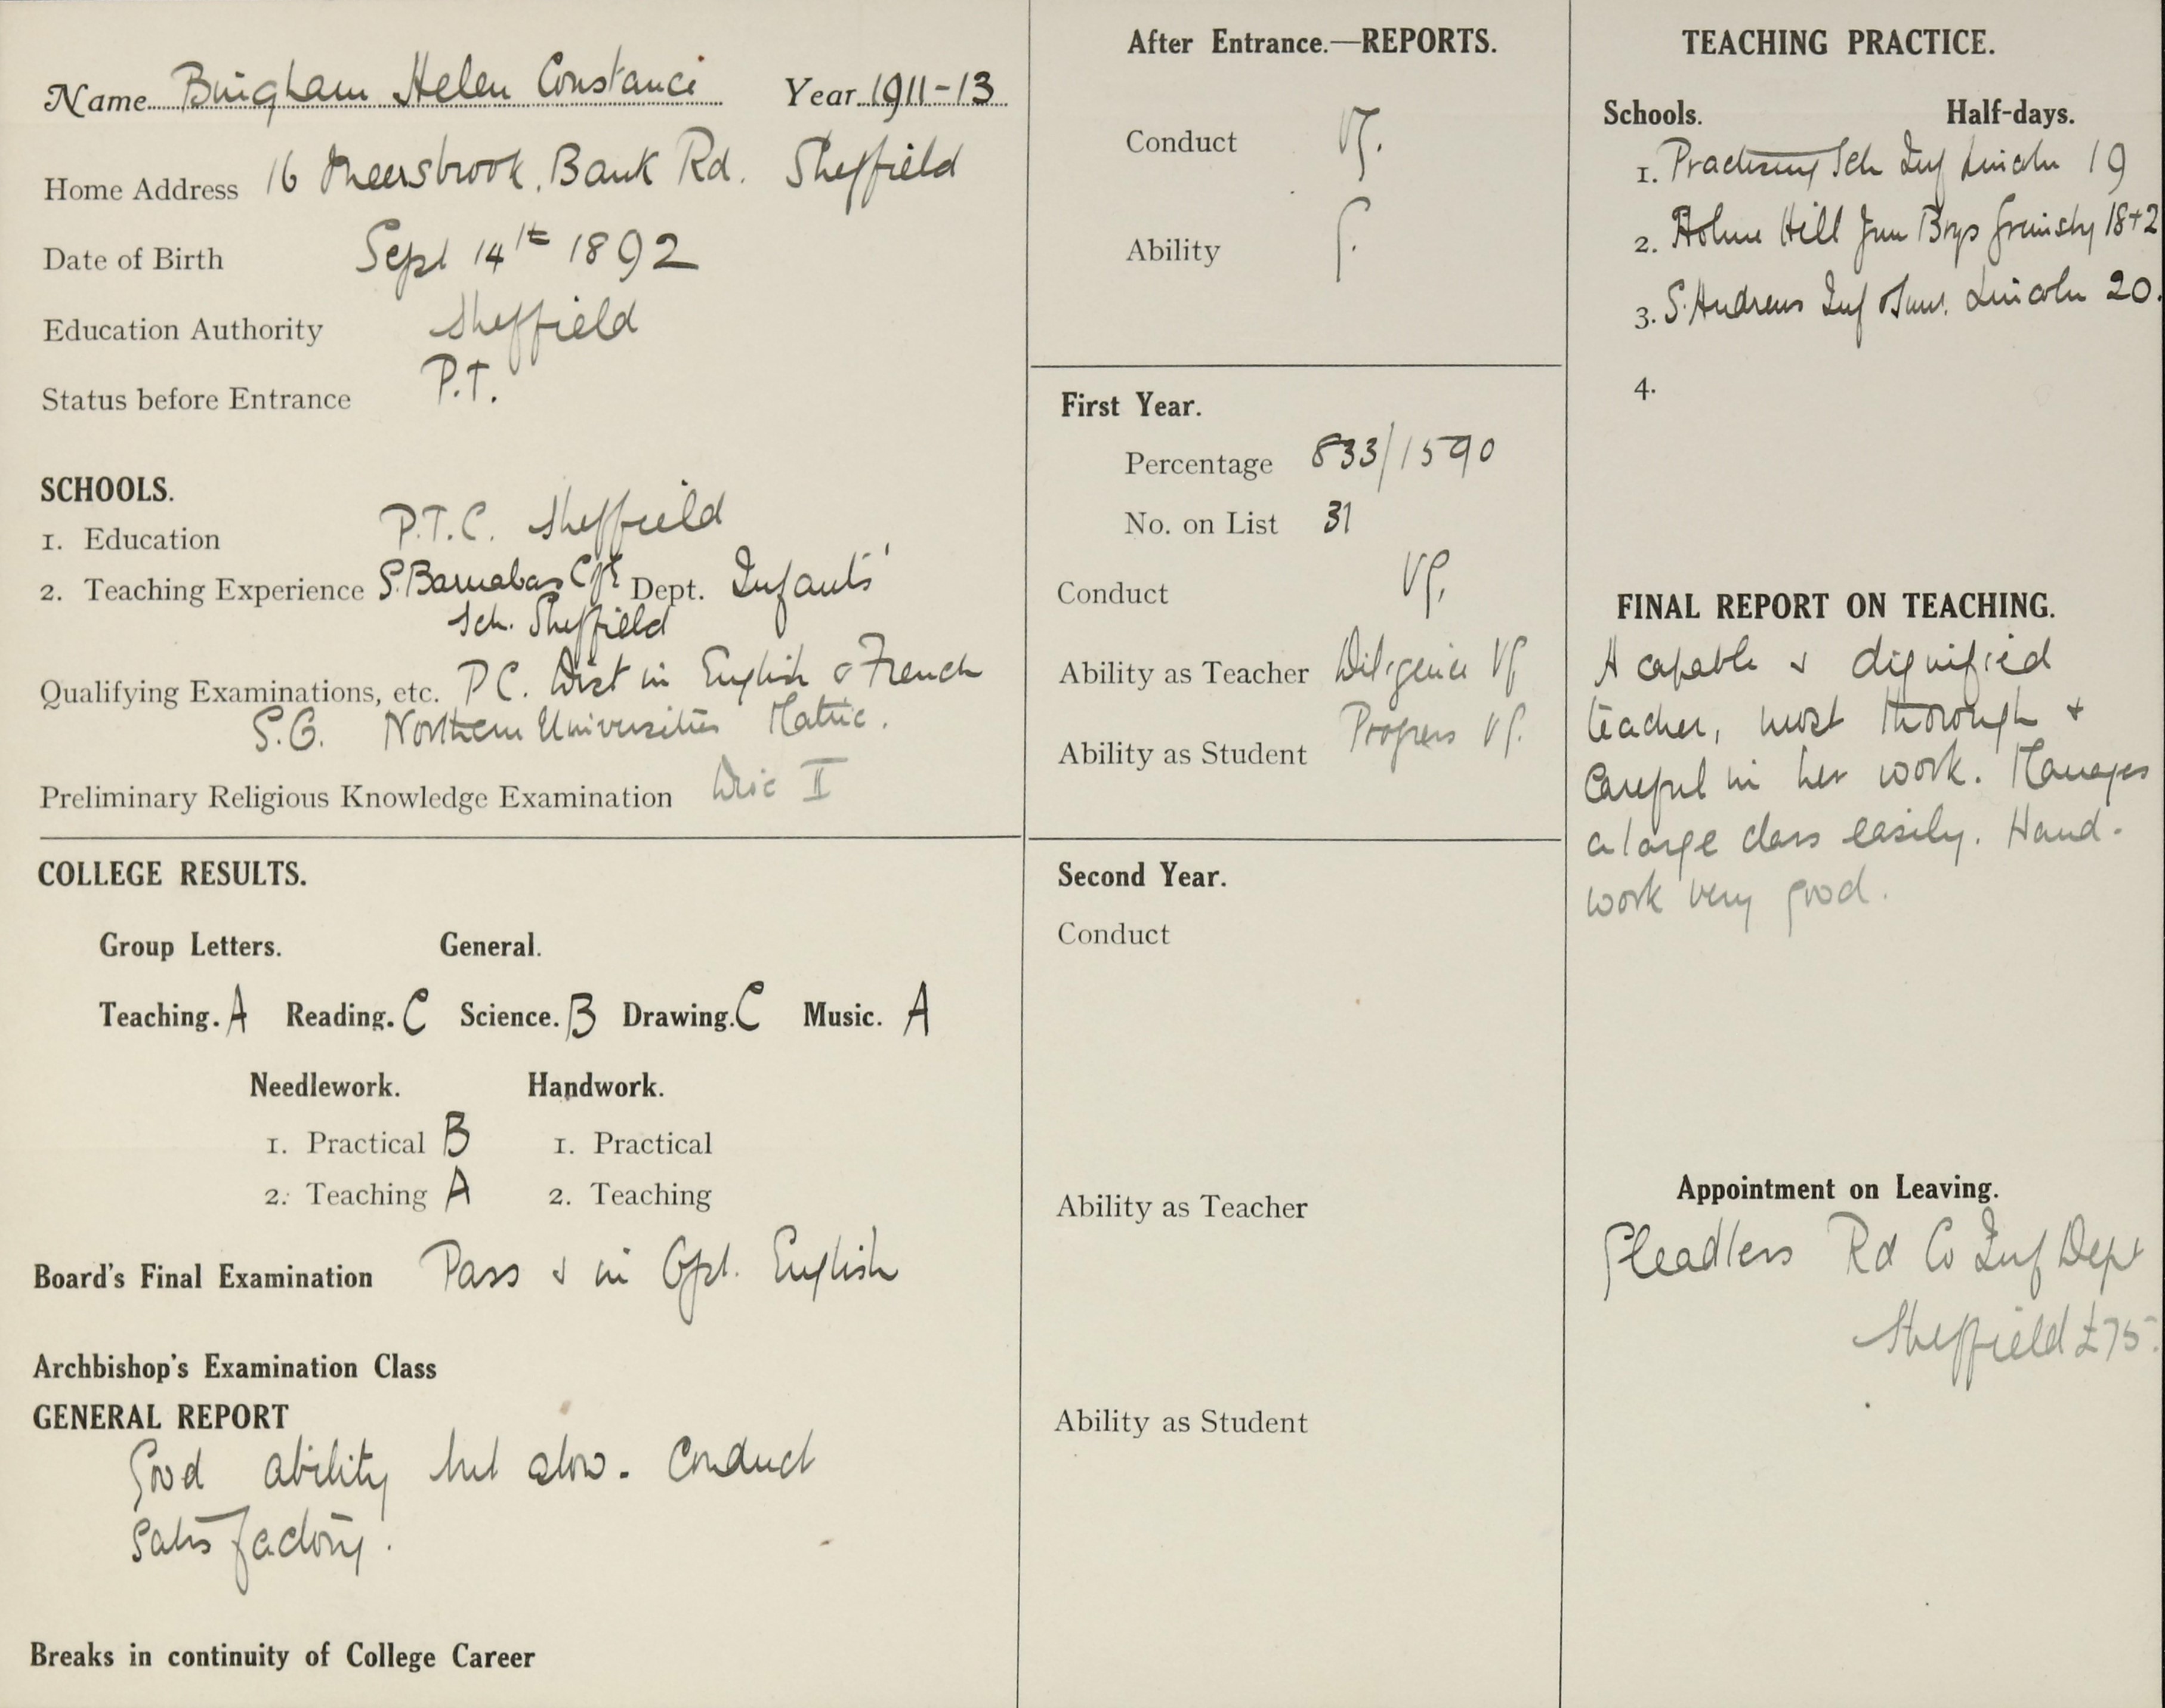 Name Bingham Helen Constance Year 1911-13
Home Address 16 Meersbrook Bank Rd. Sheffield
Date of Birth Sept 14th 1892
Education Authority Sheffield
Status before Entrance P.T.
SCHOOLS.
1. Education P.T.C. Sheffield
2. Teaching Experience S. Barnabas C of E Dept. Infants'
Sch. Sheffield
Qualifying Examinations, etc. P.C. Dist in English & French
S.G. Northern Universities Matric.
Preliminary Religious Knowledge Examination II
COLLEGE RESULTS.
Group Letters. General.
Teaching. A Reading. C Science. B Drawing. C Music. A
Needlework. Handwork.
1. Practical B 1. Practical
2. Teaching A 2. Teaching
Board's Final Examination Pass & in Opt. English
Archbishop's Examination Class
GENERAL REPORT
Good ability but slow. Conduct
Satisfactory.
Breaks in continuity of College Career
After Entrance.—REPORTS.
Conduct Vg.
Ability g.
First Year.
Percentage 833/1590
No. on List 31
Conduct Vg.
Ability as Teacher Diligence Vg
Ability as Student Progress Vg.
Second Year.
Conduct
Ability as Teacher
Ability as Student
TEACHING PRACTICE.
Schools. Half-days.
1. Practising Sch Inf Lincoln 19
2. Holme Hill Jun Boys Grimsby 18+2
3. S. Andrews Inf & Jun. Lincoln 20.
4.
FINAL REPORT ON TEACHING.
A capable & dignified
teacher, most thorough +
careful in her work. Manages
a large class easily. Hand-
work very good.
Appointment on Leaving.
Gleadless Rd Co Inf Dept
Sheffield £75.